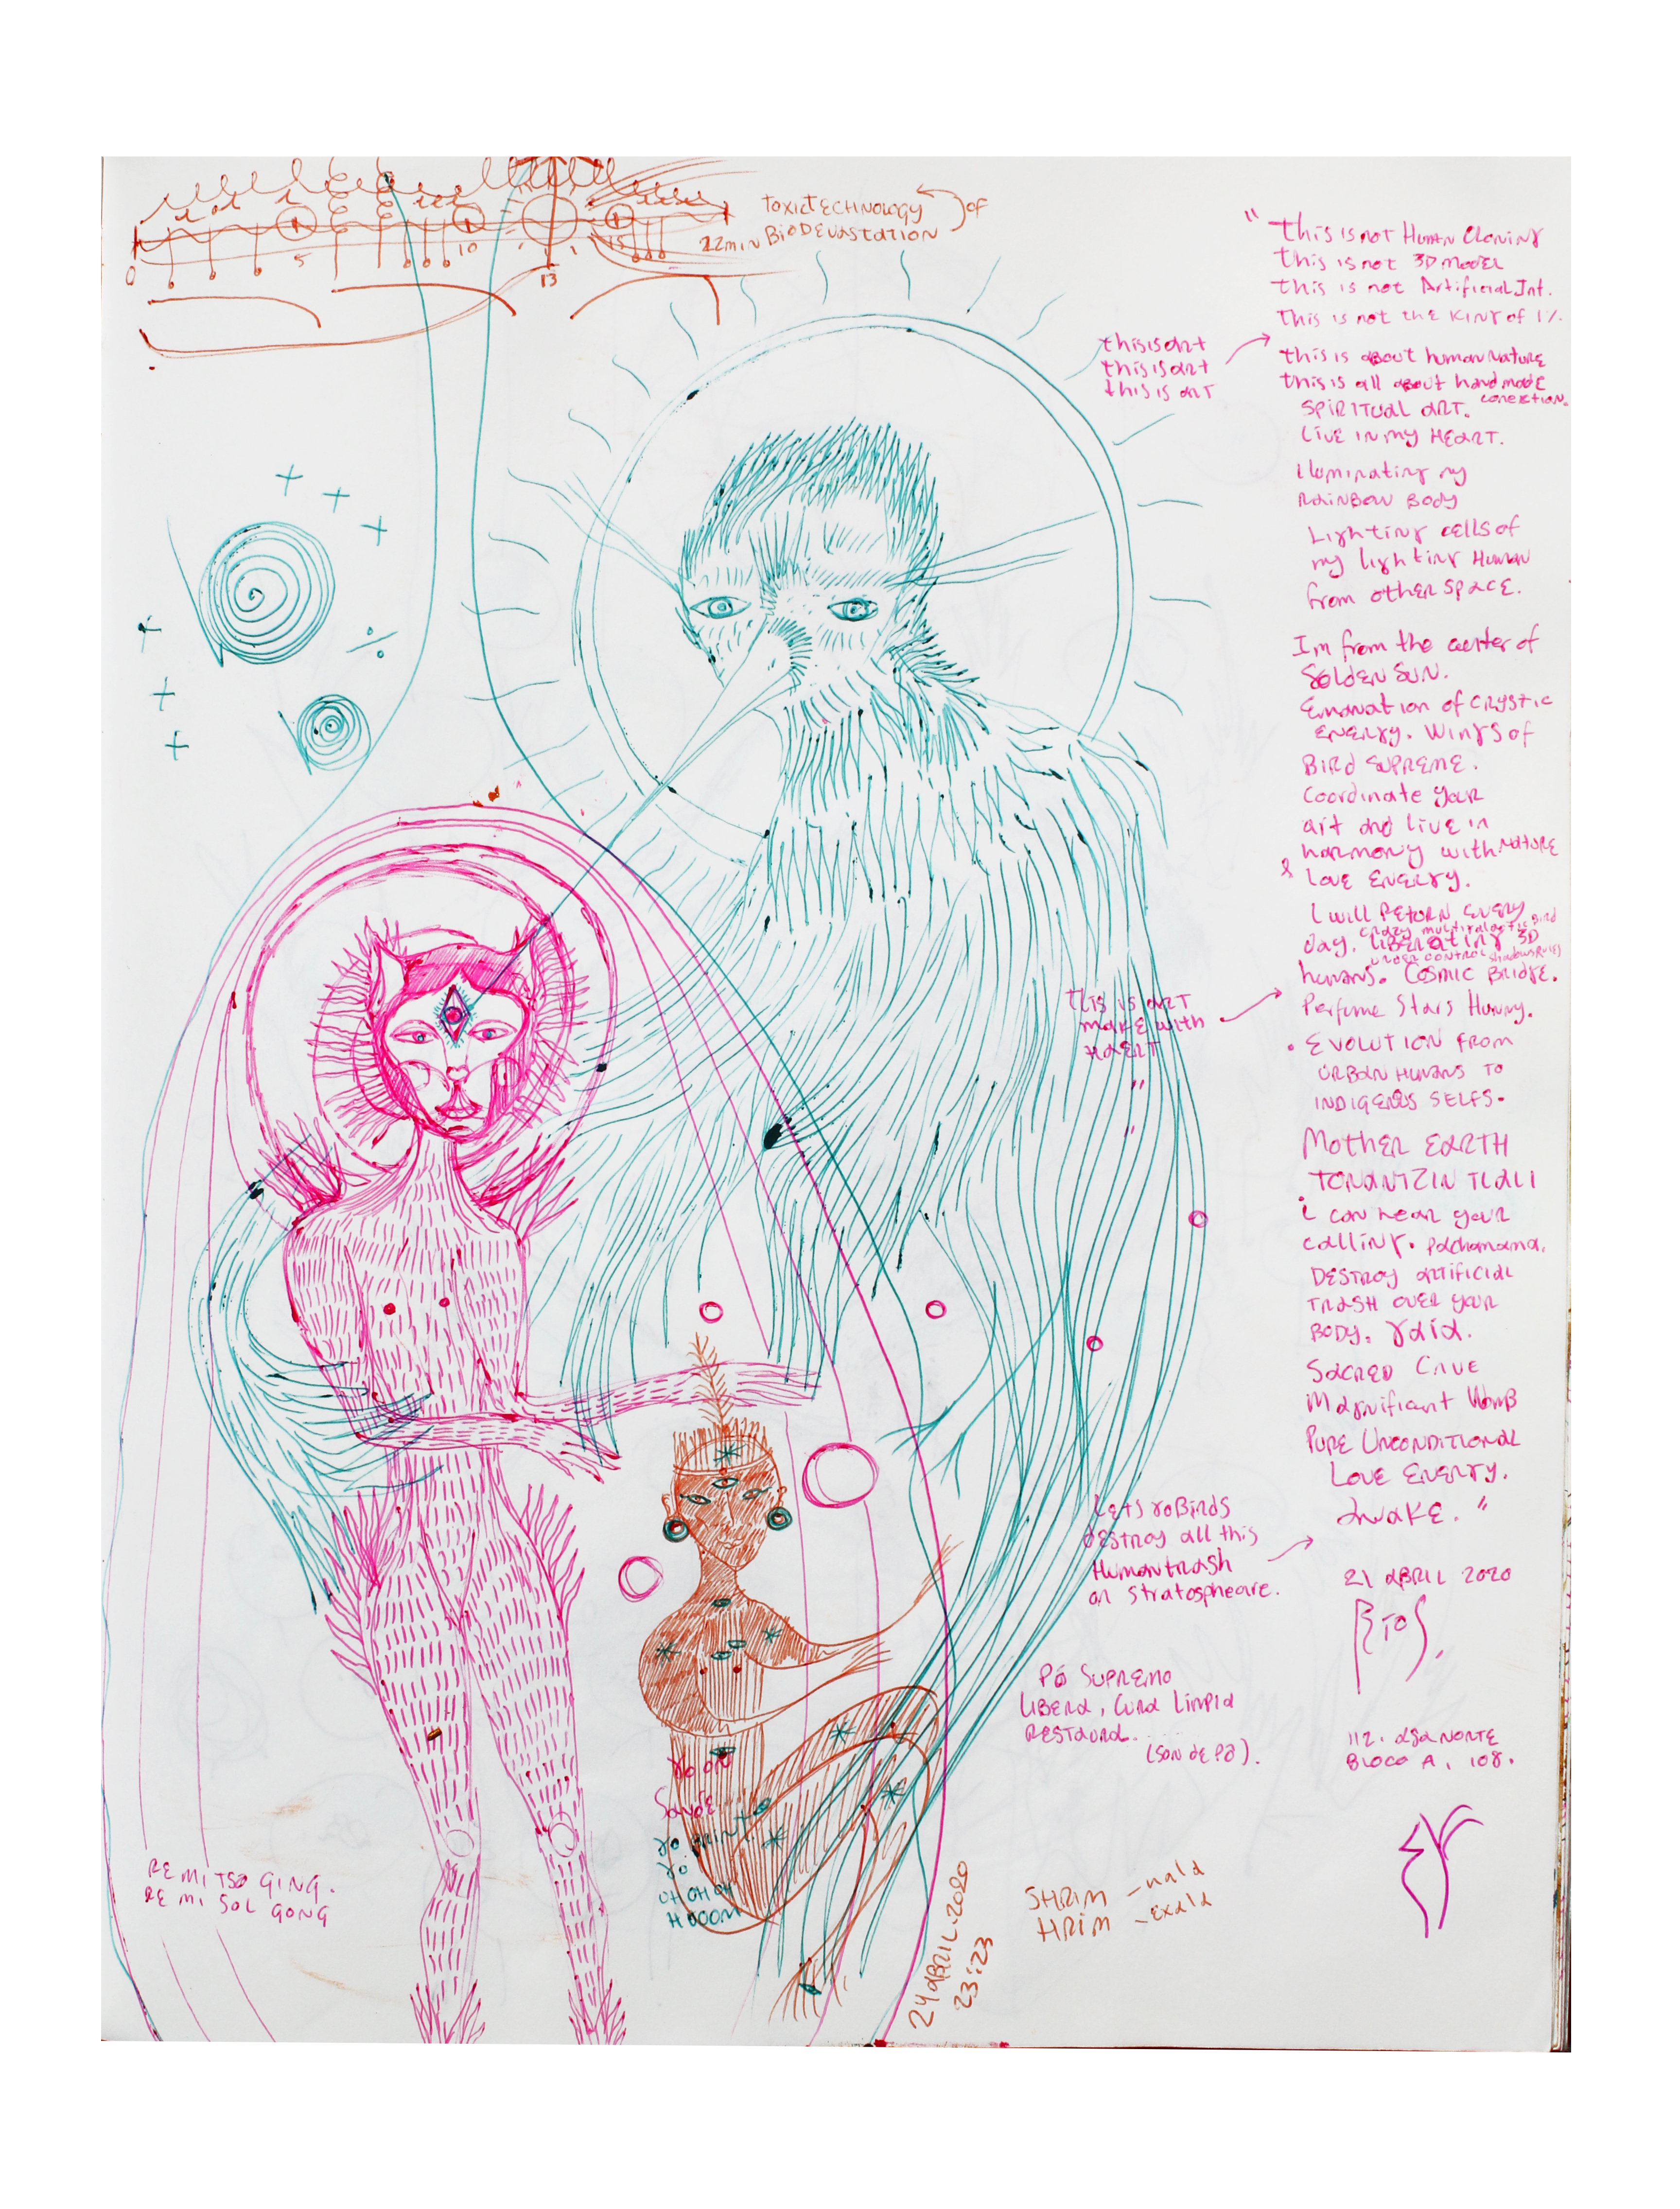 TOXIC TECHNOLOGY
of
22min BIODEVASTATION
0
5
10
13
15
"this is not Human Cloning
this is not 3D model
this is not Artificial Int.
This is not the King of 1%.
this is art
this is art
this is art
this is about human nature
this is all about handmade
conection.
SPIRITUAL ART.
Live in my HEART.
iluminating my
RAINBOW BODY
Lighting cells of
my lighting Human
from other space.
Im from the center of
Golden Sun.
Emanation of Crystic
energy. Wings of
Bird Supreme.
Coordinate your
art and live in
harmony with nature
& Love Energy.
I will return every
crazy multigalactic Bird
day. Liberating 3D
under control shadows rules
humans. Cosmic Bridge.
Perfume Stars Hunny.
This is art
make with
haert
"
"
• Evolution from
urban humans to
indigenus selfs.
Mother EARTH
TONANTZIN TLALI
i can hear your
calling. Pachamama.
Destroy artificial
trash over your
body. gaia.
Sacred Cave
Magnificant Womb
Pure Unconditional
Love Energy.
awake."
Lets go Birds
destroy all this
Human trash
on Stratospheare.
21 ABRIL 2020
112. ASA NORTE
BLOCO A, 108.
Pó Supremo
Libera, cura limpia
restaura...
(Son de Pó).
SHRIM – nala
HRIM – exala
24 ABRIL. 2020
23:23
RE MI TSO GING.
RE MI SOL GONG
OH OH OH
HOOOM